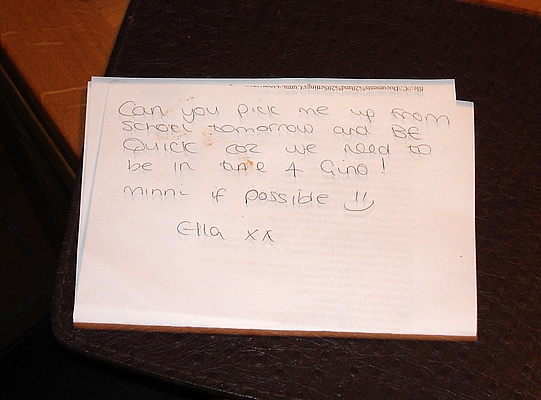 file://C:\Documents%20and%20Settings\
Can you pick me up from
school tomorrow and BE
Quick coz we need to
be in time 4 Gino!
minni if possible
Ella xx